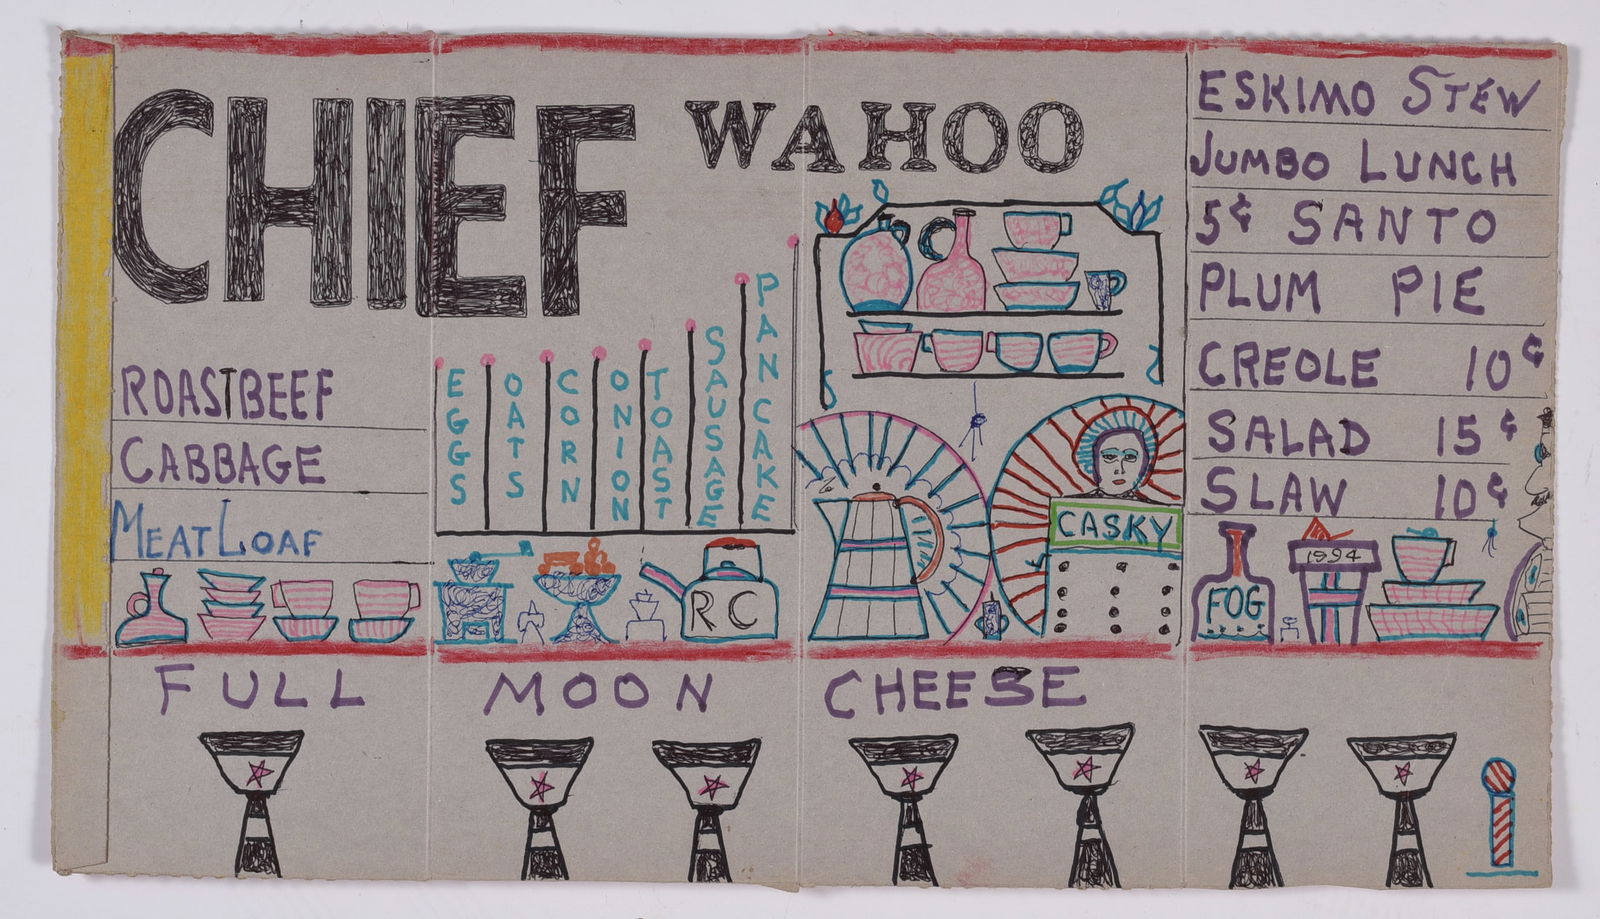 CHIEF WAHOO
ROASTBEEF
CABBAGE
MEATLOAF
EGGS
OATS
CORN
ONION
TOAST
SAUSAGE
PANCAKE
RC
CASKY
ESKIMO STEW
JUMBO LUNCH
5¢ SANTO
PLUM PIE
CREOLE 10¢
SALAD 15¢
SLAW 10¢
FOG
1994
FULL MOON CHEESE